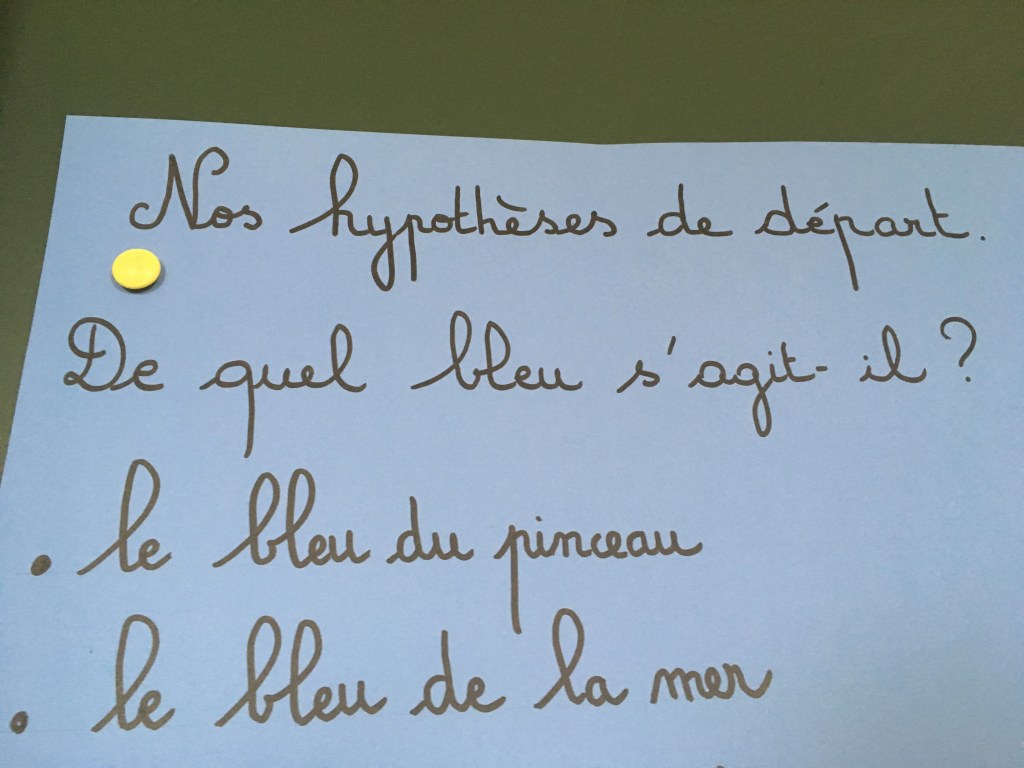 Nos hypothèses de départ.
De quel bleu s'agit-il ?
• le bleu du pinceau
• le bleu de la mer